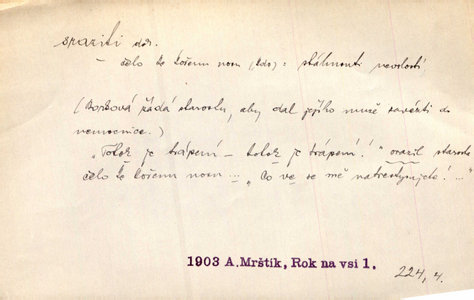 sraziti dok.
– čelo ke kořenu nosu (kdo): stáhnouti nevolností
( Borková žádá starostu, aby dal jejího muže zavézti do
nemocnice.)
„Tolik je trápení – tolik je trápení! " srazil starosta
čelo ke kořenu nosu ... „Co ve se mě natrestymejdete! ..."
1903 A. Mrštík, Rok na vsi 1.
224, 4.